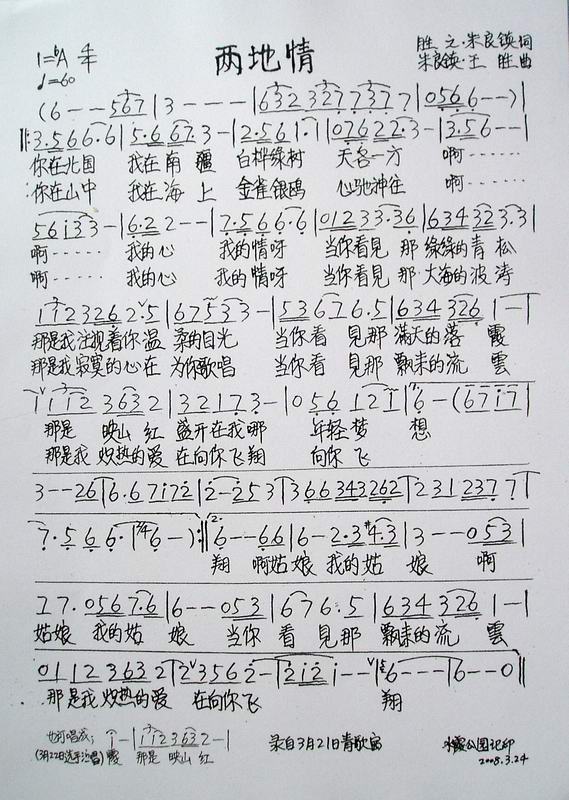 两地情
1=♭A 4/4
♩=60
胜 之·朱良镇 词
朱良镇·王 胜 曲
(6 - - 567 | 3 - - - | 632 327 737 7 | 056 6 - -) |
‖: 3.566 6.6 | 5.667 3 - | 2.561 1.1 | 07622 2.3 - | 3.56 - - |
你在北国 我在南疆 白桦绿树 天各一方 啊······
你在山中 我在海上 金雀银鸥 心驰神往 啊······
56i33 - | 6.22 - - | 7.566.6 | 01233.36 | 634323.3 |
啊······ 我的心 我的情呀 当你看見 那 绿绿的青 松
啊······ 我的心 我的情呀 当你看見 那 大海的波 涛
112326 2ˇ5 | 67533 - | 53676.5 | 634326 | 1 - |
那是我注視着你温 柔的目光 当你看 見那 满天的落 霞
那是我寂寞的心在 为你歌唱 当你看 見那 飘来的流 雲
1112 3632 | 32173 - | 056 121 | 6 - (6717 |
那是 映山 红 盛开在我哪 年轻梦 想
那是我 炽热的爱 在向你飞翔 向你 飞
3 - - 26 | 6.67i72 | 2 - 253 | 366343262 | 231237 7 |
7.566. | 6 - ) :‖ 6 - - 66 | 6 - 2.3#4.3 | 3 - - 053 |
翔 啊姑 娘 我的 姑 娘 啊
17.0567.6 | 6 - - 053 | 676.5 | 634326 | 1 - |
姑娘 我的姑 娘 当你 看 見那 飘来的流 雲
01 12 3632 | 2ˇ3562 - | 2i2i - -ˇ | 6 - - - | 6 - - 0 ‖
那是我 炽热的爱 在向你飞 翔
也可唱成: 1 - | 1123632 - |
(3月22日选手演唱) 霞 那是 映山 红
录自3月21日青歌赛
公园记印
2008.3.24